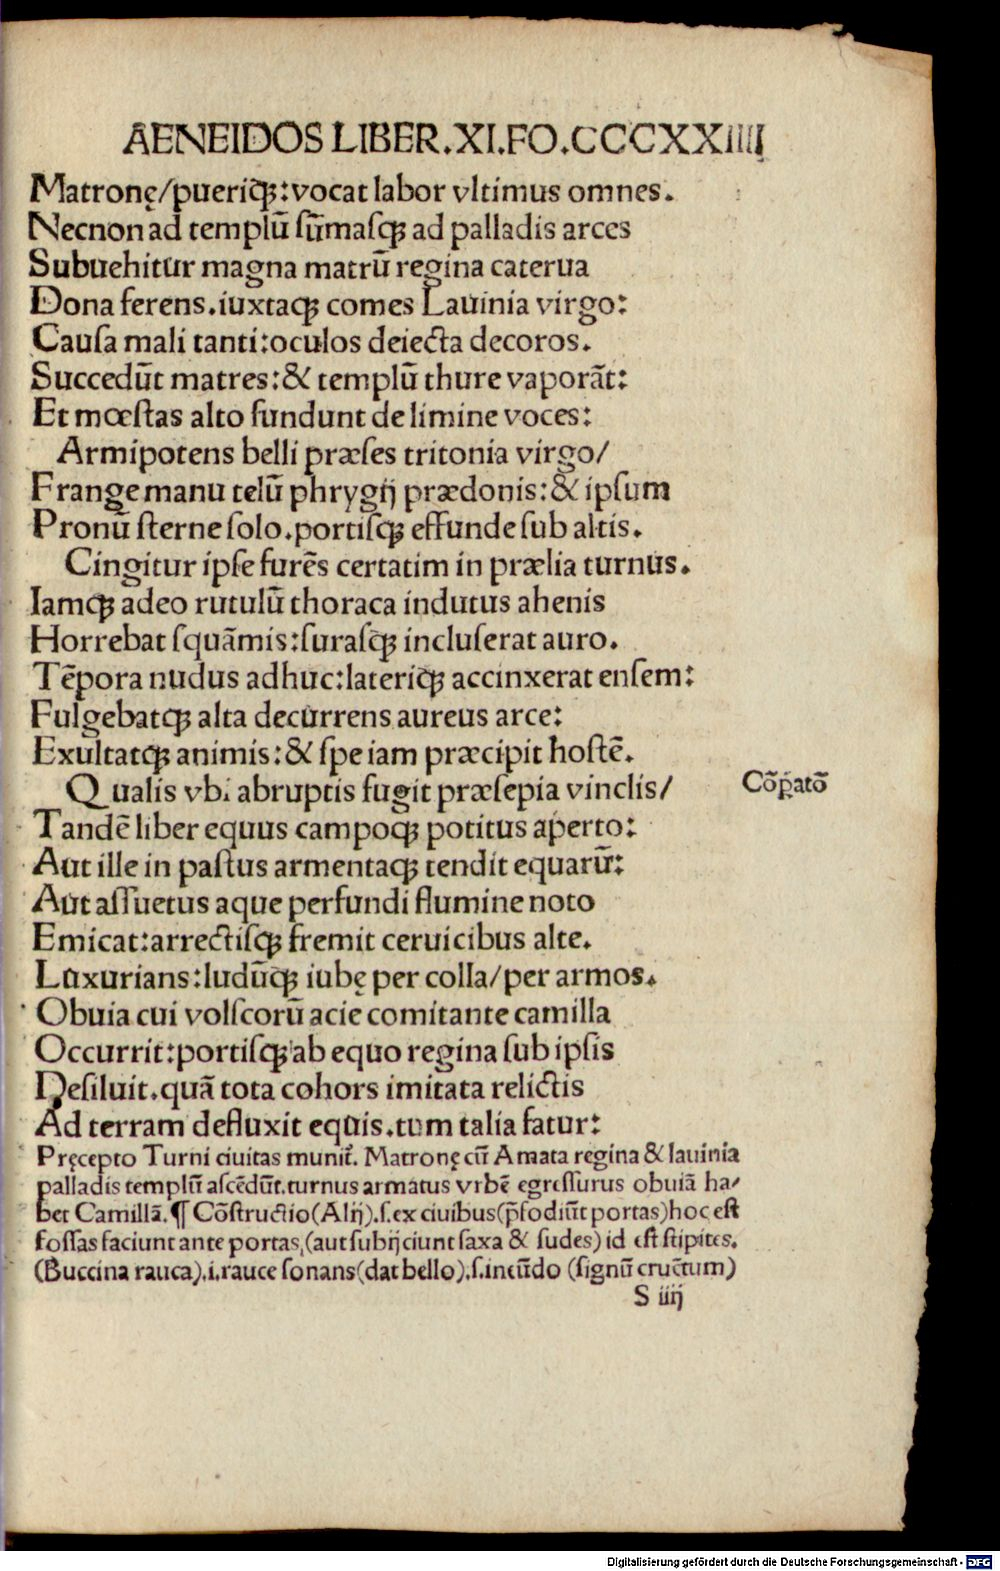 AENEIDOS LIBER.XI.FO.CCCXXIIII
Matronę/pueriqꝫ:vocat labor vltimus omnes.
Necnon ad templū sūmasqꝫ ad palladis arces
Subuehitur magna matrū regina caterua
Dona ferens.iuxtaqꝫ comes Lauinia virgo:
Causa mali tanti:oculos deiecta decoros.
Succedūt matres:& templū thure vaporāt:
Et mœstas alto fundunt de limine voces:
Armipotens belli præses tritonia virgo/
Frange manu telū phrygij prædonis:& ipsum
Pronū sterne solo.portisqꝫ effunde sub altis.
Cingitur ipse furēs certatim in prælia turnus.
Iamqꝫ adeo rutulū thoraca indutus ahenis
Horrebat squāmis:surasqꝫ incluserat auro.
Tēpora nudus adhuc:lateriqꝫ accinxerat ensem:
Fulgebatqꝫ alta decurrens aureus arce:
Exultatqꝫ animis:& spe iam præcipit hostē.
Qualis vbi abruptis fugit præsepia vinclis/
Cōꝑatō
Tandē liber equus campoqꝫ potitus aperto:
Aut ille in pastus armentaqꝫ tendit equarū:
Aut assuetus aque perfundi flumine noto
Emicat:arrectisqꝫ fremit ceruicibus alte.
Luxurians:ludūtqꝫ iubę per colla/per armos.
Obuia cui volscorū acie comitante camilla
Occurrit:portisqꝫ ab equo regina sub ipsis
Desiluit.quā tota cohors imitata relictis
Ad terram defluxit equis.tum talia fatur:
Pręcepto Turni ciuitas munit̄. Matronę cū Amata regina & lauinia
palladis templū ascēdūt.turnus armatus vrbē egressurus obuiā ha/
bet Camillā.¶ Cōstructio(Alij).s.ex ciuibus(p̄fodiūt portas)hoc est
fossas faciunt ante portas,(aut subijciunt saxa & sudes) id est stipites.
(Buccina rauca).i.rauce sonans(dat bello).s.ineūdo (signū cruētum)
S iiij
Digitalisierung gefördert durch die Deutsche Forschungsgemeinschaft - DFG